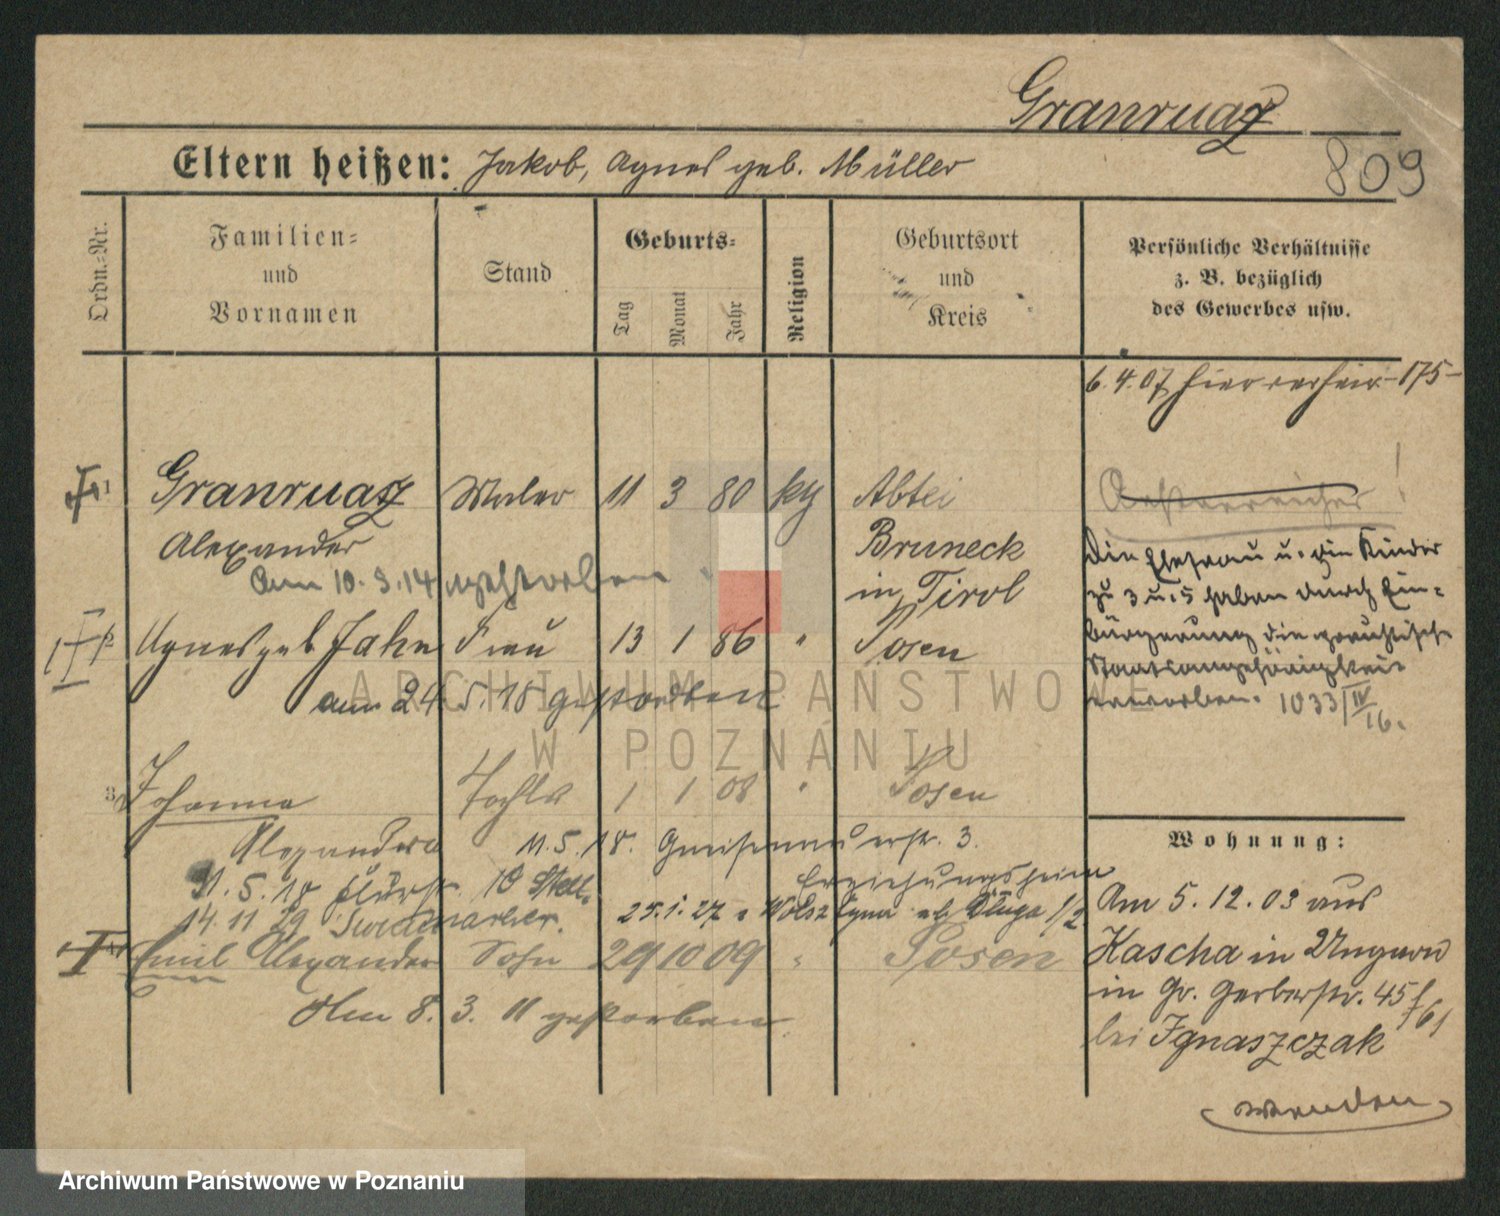 Granruaz
809
Eltern heißen: Jakob, Agnes geb. Müller
Ordn.-Nr.
Familien-
und
Vornamen
Stand
Geburts-
Tag
Monat
Jahr
Religion
Geburtsort
und
Kreis
Persönliche Verhältnisse
z. B. bezüglich
des Gewerbes usw.
6.4.07 hier verheir. -175-
1 Granruaz Maler 11 3 80 kg Abtei
Oesterreicher !
Alexander Bruneck
Am 10.3.14 gestorben in Tirol
Die Ehefrau u. die Kinder
zu 3 u. 5 haben durch Ein-
bürgerung die preußische
Staatsangehörigkeit
erworben. 1033/IV 16.
2 Agnes geb Jahn Frau 13 1 86 " Posen
am 24.5.18 gestorben
ARCHIWUM PAŃSTWOWE
W POZNANIU
3 Johanna Tochter 1 1 08 " Posen
Alexandra 11.5.18. Gneisenauerstr. 3.
Erziehungsheim
11.5.18
14.11 29
25.1.27 Długa 1/2
4 Emil Alexander Sohn 29 10 09 " Posen
Am 8.3.11 gestorben
Wohnung:
Am 5.12.03 aus
Kascha in Ungarn
in Gr. Gerberstr. 45
bei Ignaszczak
wenden
Archiwum Państwowe w Poznaniu